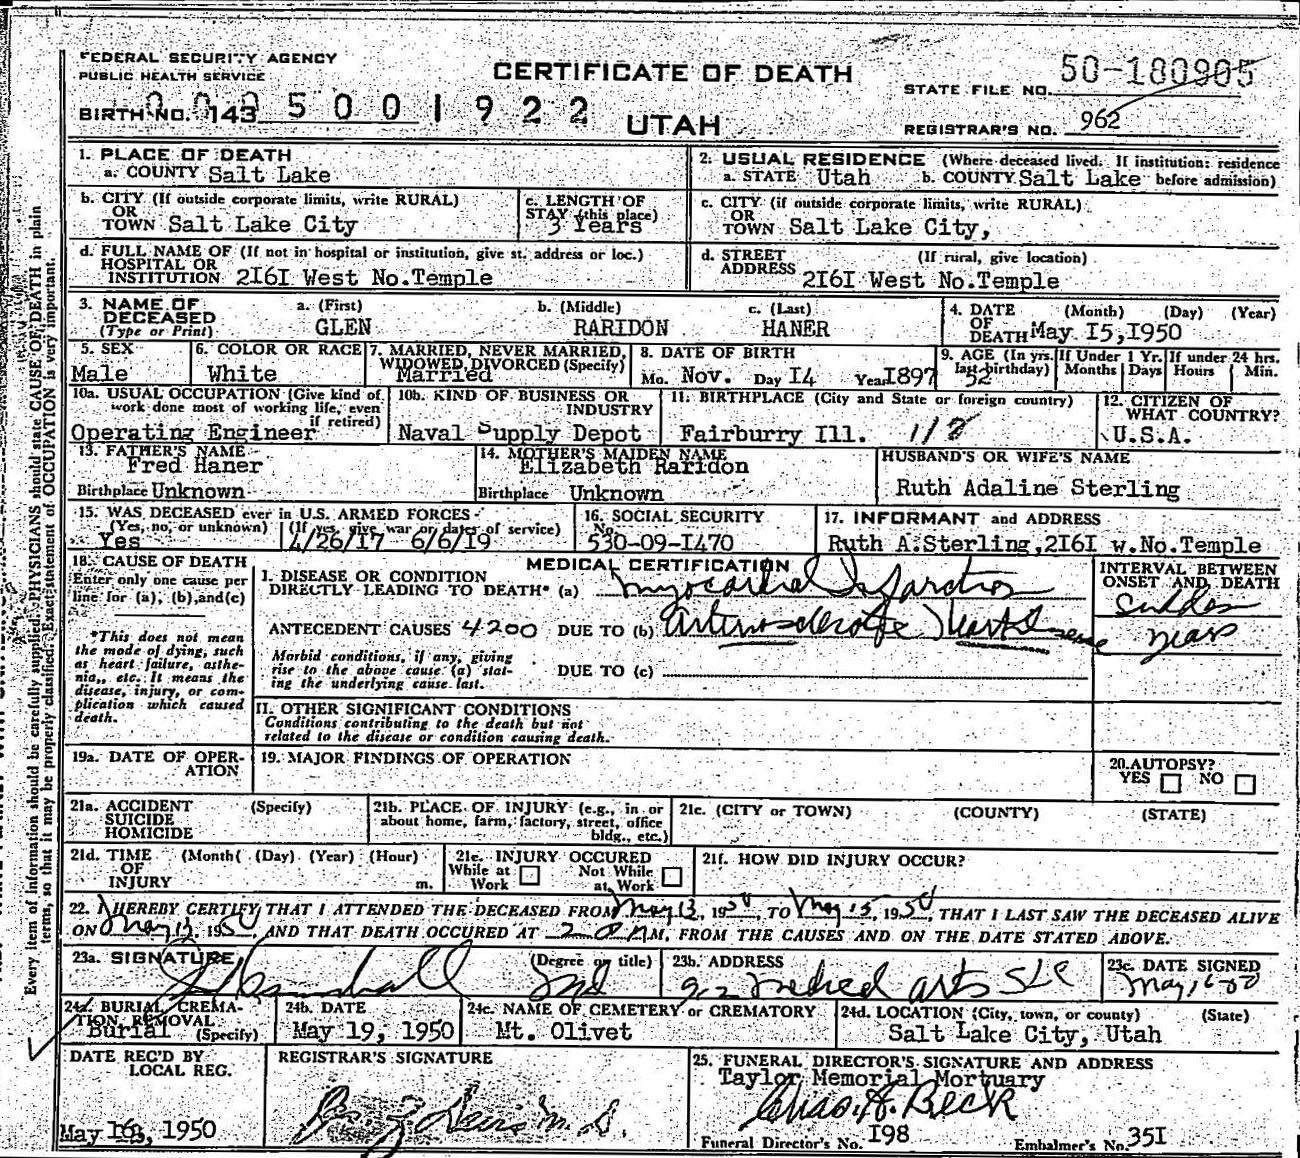 FEDERAL SECURITY AGENCY
PUBLIC HEALTH SERVICE
CERTIFICATE OF DEATH
UTAH
STATE FILE NO. 50-180905
REGISTRAR'S NO. 962
BIRTH NO. 143 5 0 0 1 9 2 2
1. PLACE OF DEATH
a. COUNTY Salt Lake
2. USUAL RESIDENCE (Where deceased lived. If institution: residence before admission)
a. STATE Utah b. COUNTY Salt Lake
b. CITY (If outside corporate limits, write RURAL)
OR
TOWN Salt Lake City
c. LENGTH OF
STAY (this place)
3 Years
c. CITY (if outside corporate limits, write RURAL)
OR
TOWN Salt Lake City,
d. FULL NAME OF (If not in hospital or institution, give st. address or loc.)
HOSPITAL OR
INSTITUTION 2I6I West No.Temple
d. STREET (If rural, give location)
ADDRESS 2I6I West No.Temple
3. NAME OF DECEASED (Type or Print)
a. (First) b. (Middle) c. (Last)
GLEN RARIDON HANER
4. DATE (Month) (Day) (Year)
OF
DEATH May I5,I950
5. SEX
Male
6. COLOR OR RACE
White
7. MARRIED, NEVER MARRIED,
WIDOWED, DIVORCED (Specify)
Married
8. DATE OF BIRTH
Mo. Nov. Day I4 Year I897
9. AGE (In yrs. last birthday) 52
If Under 1 Yr. Months Days
If under 24 hrs. Hours Min.
10a. USUAL OCCUPATION (Give kind of
work done most of working life, even
if retired)
Operating Engineer
10b. KIND OF BUSINESS OR
INDUSTRY
Naval Supply Depot
11. BIRTHPLACE (City and State or foreign country)
Fairburry Ill.
12. CITIZEN OF
WHAT COUNTRY?
U.S.A.
13. FATHER'S NAME
Fred Haner
Birthplace Unknown
14. MOTHER'S MAIDEN NAME
Elizabeth Raridon
Birthplace Unknown
HUSBAND'S OR WIFE'S NAME
Ruth Adaline Sterling
15. WAS DECEASED ever in U.S. ARMED FORCES
(Yes, no, or unknown) (If yes, give war or dates of service)
Yes 4/26/I7 6/6/I9
16. SOCIAL SECURITY
No.
530-09-I470
17. INFORMANT and ADDRESS
Ruth A.Sterling,2I6I w.No.Temple
18. CAUSE OF DEATH
Enter only one cause per
line for (a), (b),and(c)
*This does not mean
the mode of dying, such
as heart failure, asthe-
nia, etc. It means the
disease, injury, or com-
plication which caused
death.
MEDICAL CERTIFICATION
I. DISEASE OR CONDITION
DIRECTLY LEADING TO DEATH* (a) Myocardial Infarction
ANTECEDENT CAUSES 4200 DUE TO (b) Arteriosclerotic Heart Disease
Morbid conditions, if any, giving
rise to the above cause (a) stat-
ing the underlying cause last.
DUE TO (c)
INTERVAL BETWEEN
ONSET AND DEATH
Sudden
years
II. OTHER SIGNIFICANT CONDITIONS
Conditions contributing to the death but not
related to the disease or condition causing death.
19a. DATE OF OPER-
ATION
19. MAJOR FINDINGS OF OPERATION
20.AUTOPSY?
YES NO
21a. ACCIDENT (Specify)
SUICIDE
HOMICIDE
21b. PLACE OF INJURY (e.g., in or
about home, farm, factory, street, office
bldg., etc.)
21c. (CITY or TOWN) (COUNTY) (STATE)
21d. TIME (Month( (Day) (Year) (Hour)
OF
INJURY m.
21e. INJURY OCCURED
While at Work Not While at Work
21f. HOW DID INJURY OCCUR?
22. I HEREBY CERTIFY THAT I ATTENDED THE DECEASED FROM May 13, 1950, TO May 15, 1950, THAT I LAST SAW THE DECEASED ALIVE
ON May 13, 1950, AND THAT DEATH OCCURED AT M, FROM THE CAUSES AND ON THE DATE STATED ABOVE.
23a. SIGNATURE (Degree or title)
23b. ADDRESS
Medical Arts SLC
23c. DATE SIGNED
24a. BURIAL, CREMA-
TION, REMOVAL
Burial (Specify)
24b. DATE
May 19, 1950
24c. NAME OF CEMETERY or CREMATORY
Mt. Olivet
24d. LOCATION (City, town, or county) (State)
Salt Lake City, Utah
DATE REC'D BY
LOCAL REG.
May 16, 1950
REGISTRAR'S SIGNATURE
25. FUNERAL DIRECTOR'S SIGNATURE AND ADDRESS
Taylor Memorial Mortuary
Chas. A. Beck
Funeral Director's No. I98 Embalmer's No. 35I
Every item of information should be carefully supplied. PHYSICIANS should state CAUSE OF DEATH in plain
terms, so that it may be properly classified. Exact statement of OCCUPATION is very important.